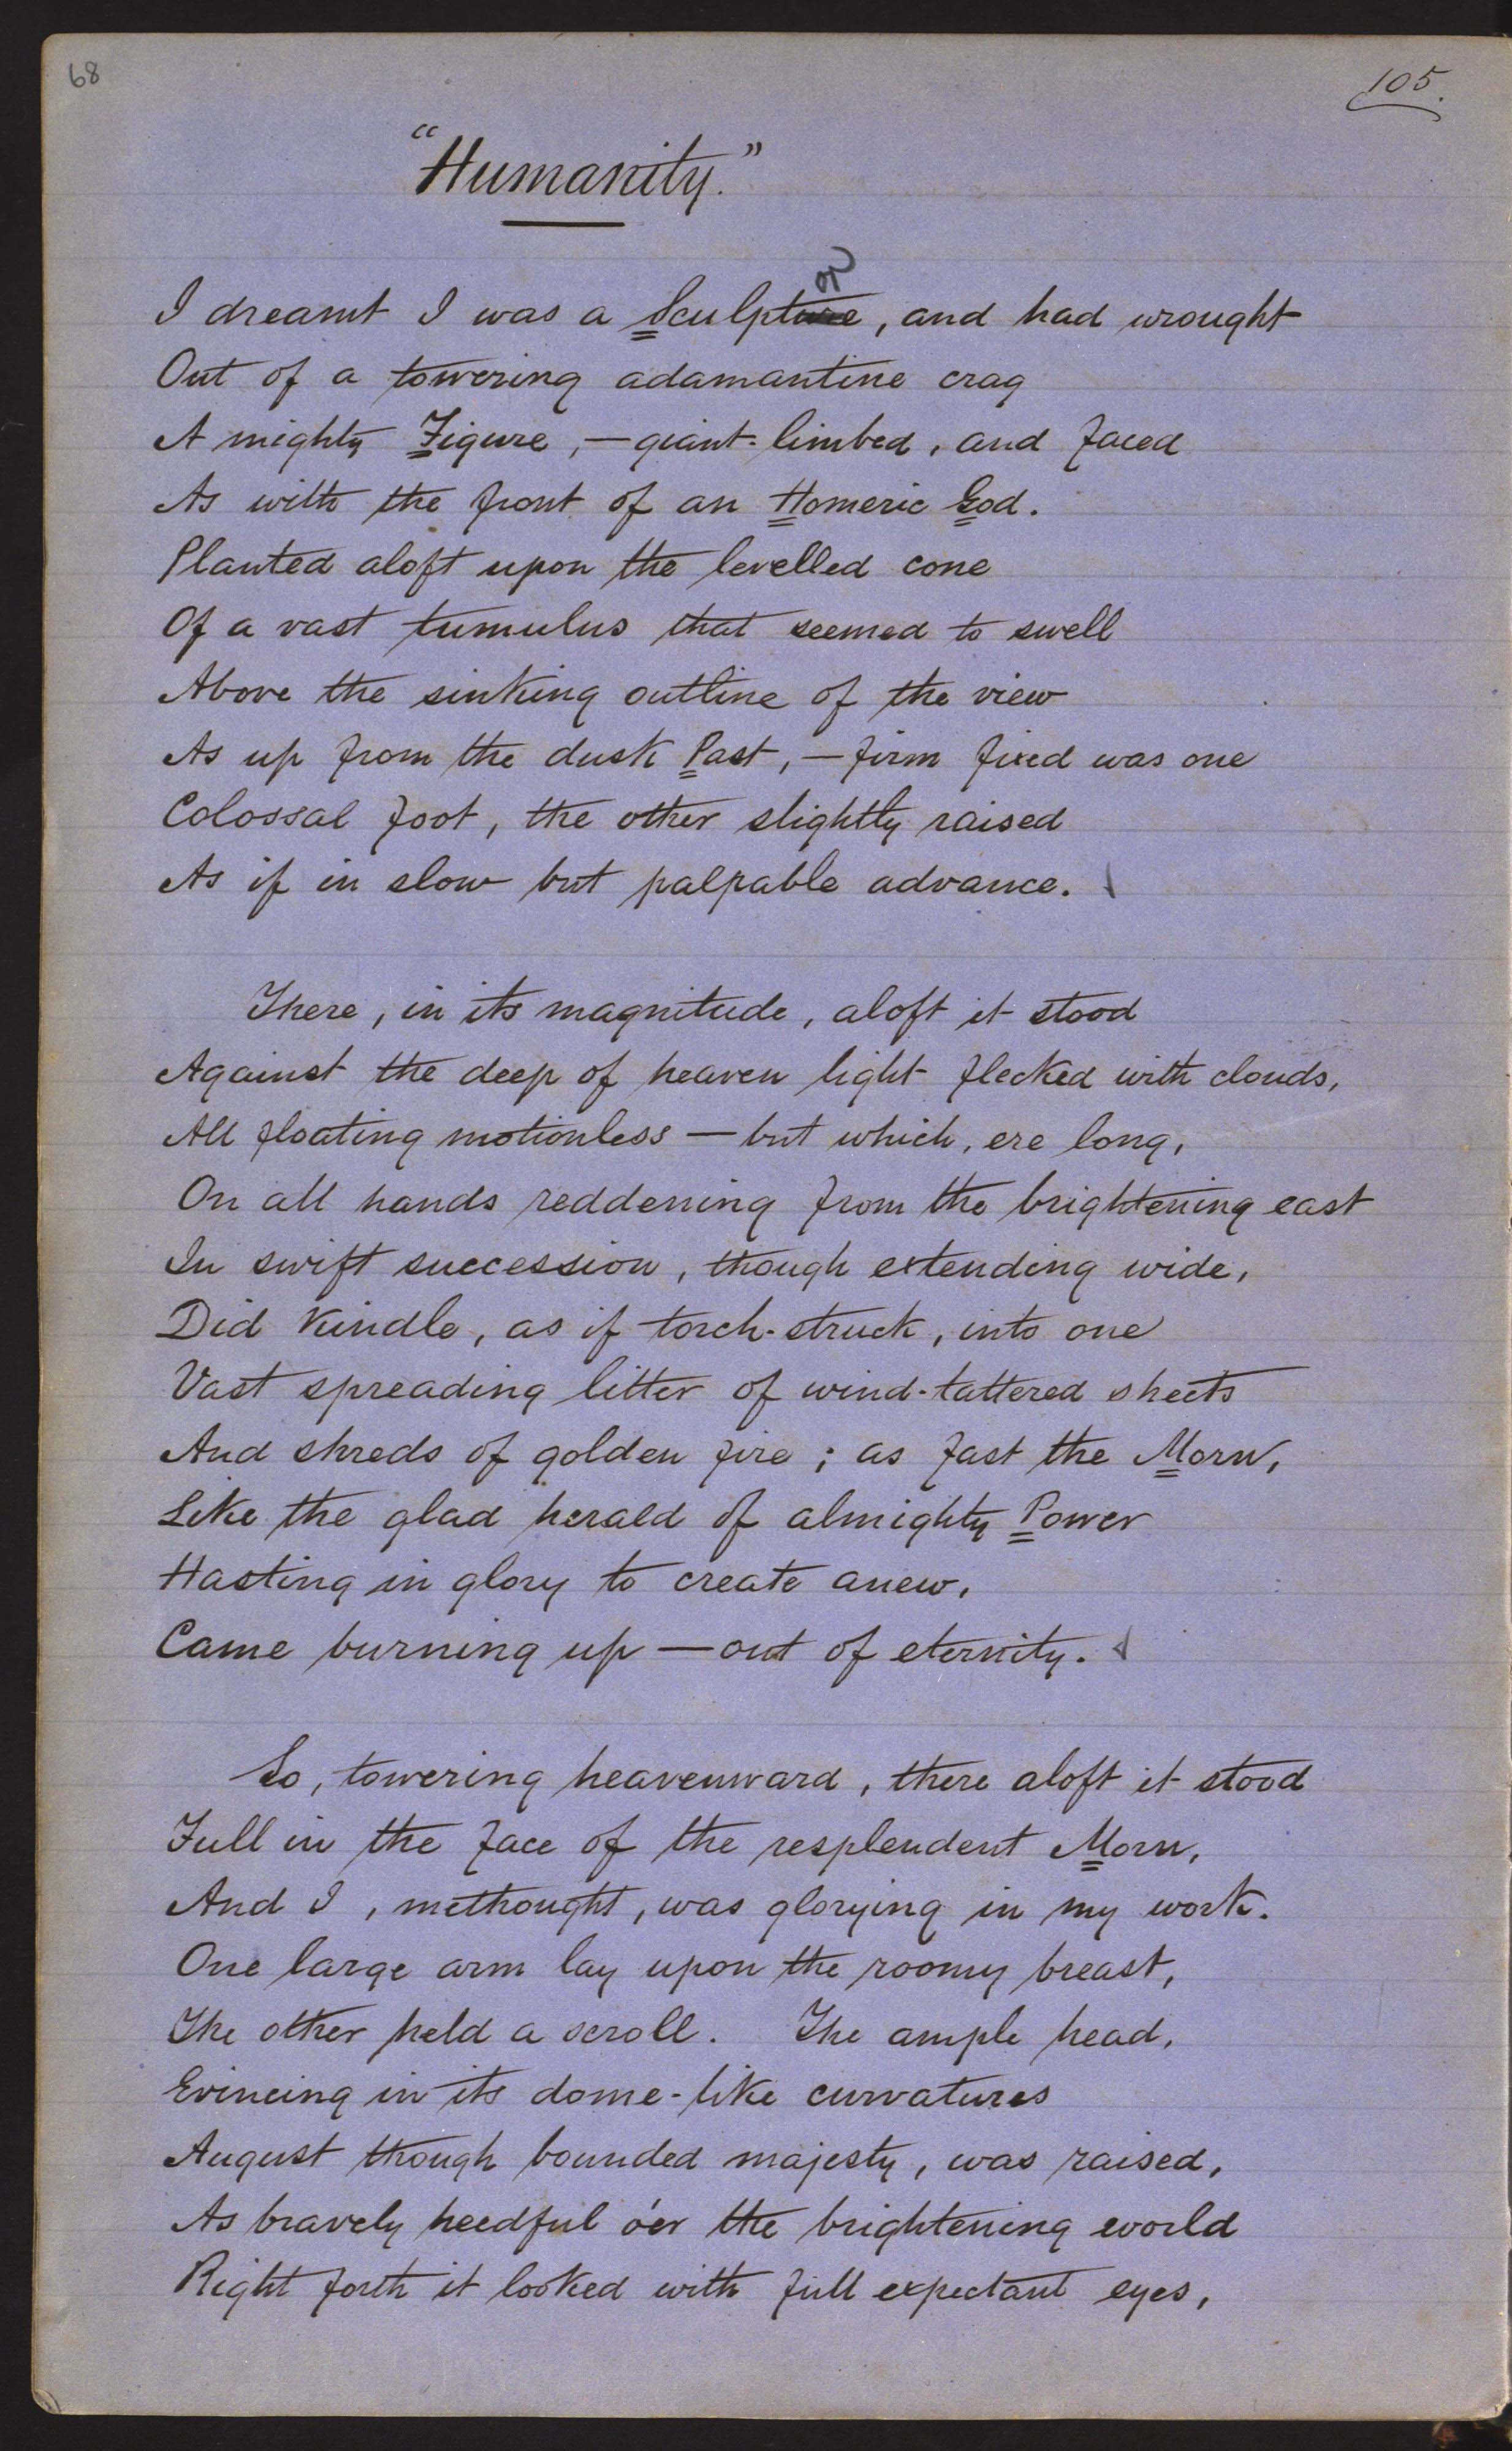 68
105.
"Humanity."
I dreamt I was a Sculptor, and had wrought
Out of a towering adamantine crag
A mighty Figure, — giant-limbed, and faced
As with the front of an Homeric God.
Planted aloft upon the levelled cone
Of a vast tumulus that seemed to swell
Above the sinking outline of the view
As up from the dusk Past, — firm fixed was one
Colossal foot, the other slightly raised
As if in slow but palpable advance.
There, in its magnitude, aloft it stood
Against the deep of heaven light flecked with clouds,
All floating motionless — but which, ere long,
On all hands reddening from the brightening east
In swift succession, though extending wide,
Did kindle, as if torch-struck, into one
Vast spreading litter of wind-tattered sheets
And shreds of golden fire; as fast the Morn,
Like the glad herald of almighty Power
Hasting in glory to create anew,
Came burning up — out of eternity.
So, towering heavenward, there aloft it stood
Full in the face of the resplendent Morn,
And I, methought, was glorying in my work.
One large arm lay upon the roomy breast,
The other held a scroll. The ample head,
Evincing in its dome-like curvatures
August though bounded majesty, was raised,
As bravely heedful o'er the brightening world
Right forth it looked with full expectant eyes,